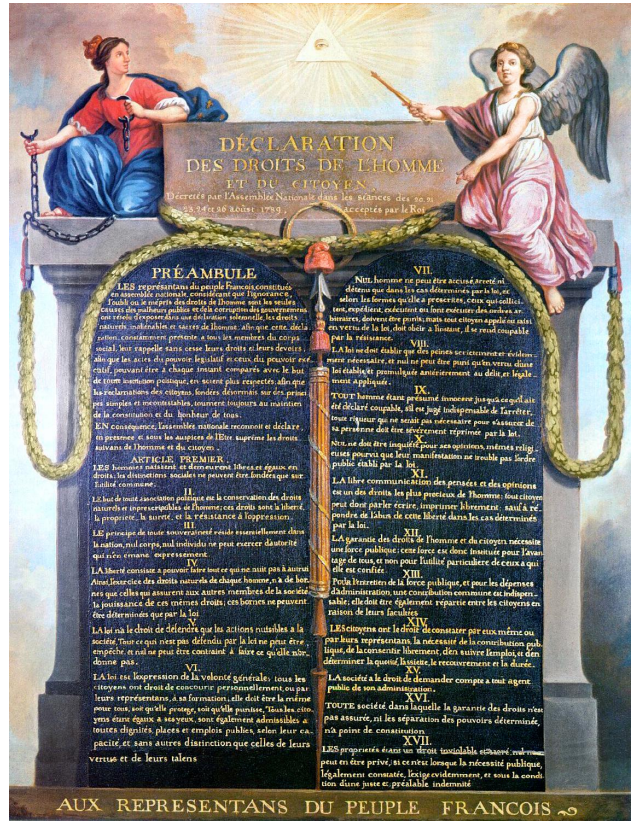 DÉCLARATION
DES DROITS DE L'HOMME
ET DU CITOYEN,
Décretés par l'Assemblée Nationale dans les séances des 20. 21
23. 24 et 26 août 1789, acceptés par le Roi
PRÉAMBULE
LES représentans du peuple François, constitués
en assemblée nationale, considérant que l'ignorance,
l'oubli ou le mépris des droits de l'homme sont les seules
causes des malheurs publics et de la corruption des gouvernemens
ont résolu d'exposer dans une déclaration solemnelle, les droits
naturels, inaliénables et sacrés de l'homme; afin que cette décla
ration, constamment présente a tous les membres du corps
social, leur rappelle sans cesse leurs droits et leurs devoirs;
afin que les actes du pouvoir législatif et ceux du pouvoir exé
cutif, pouvant être a chaque instant comparés avec le but
de toute institution politique, en soient plus respectés; afin que
les reclamations des citoyens, fondées désormais sur des princi
pes simples et incontestables, tournent toujours au maintien
de la constitution et du bonheur de tous.
EN conséquence, l'assemblée nationale reconnoit et déclare,
en presence et sous les auspices de l'Etre suprême les droits
suivans de l'homme et du citoyen.
ARTICLE PREMIER
LES hommes naissent et demeurent libres et égaux en
droits; les distinctions sociales ne peuvent être fondées que sur
l'utilité commune.
II.
LE but de toute association politique est la conservation des droits
naturels et imprescriptibles de l'homme; ces droits sont la liberté,
la propriété, la sureté, et la résistance à l'oppression.
III.
LE principe de toute souveraineté réside essentiellement dans
la nation, nul corps, nul individu ne peut exercer d'autorité
qui n'en émane expressement.
IV
LA liberté consiste a pouvoir faire tout ce qui ne nuit pas à autrui
Ainsi, l'exercice des droits naturels de chaque homme, n'a de bor
nes que celles qui assurent aux autres membres de la société
la jouissance de ces mêmes droits; ces bornes ne peuvent
être déterminées que par la loi
V
LA loi n'a le droit de défendre que les actions nuisibles a la
société. Tout ce qui n'est pas défendu par la loi ne peut être
empêché, et nul ne peut être contraint à faire ce qu'elle n'or
donne pas.
VI.
LA loi est l'expression de la volonté générale; tous les
citoyens ont droit de concourir personnellement, ou par
leurs représentans, à sa formation; elle doit être la même
pour tous, soit qu'elle protege, soit qu'elle punisse. Tous les cito
yens étant égaux a ses yeux, sont également admissibles a
toutes dignités, places et emplois publics, selon leur ca
pacité, et sans autres distinction que celles de leurs
vertus et de leurs talens
VII.
NUL homme ne peut être accusé, arreté ni
détenu que dans les cas déterminés par la loi, et
selon les formes qu'elle a prescrites, ceux qui sollici
tent, expédient, exécutent ou font exécuter des ordres ar
bitraires, doivent être punis; mais tout citoyen appelé ou saisi
en vertu de la loi, doit obéir a l'instant, il se rend coupable
par la résistance.
VIII.
LA loi ne doit établir que des peines strictement et évidem
ment nécessaire, et nul ne peut être puni qu'en vertu d'une
loi établie et promulguée antérierement au délit, et légale
ment appliquée.
IX.
TOUT homme étant présumé innocent jusqu'a ce qu'il ait
été déclaré coupable, s'il est jugé indispensable de l'arrêter,
toute rigueur qui ne serait pas nécessaire pour s'assurer de
sa personne doit être sévérement réprimée par la loi.
X.
NUL ne doit être inquiété pour ses opinions, mêmes religi
euses pourvu que leur manifestation ne trouble pas l'ordre
public établi par la loi.
XI.
LA libre communication des pensées et des opinions
est un des droits les plus precieux de l'homme; tout citoyen
peut donc parler écrire, imprimer librement: sauf a ré
pondre de l'abus de cette liberté dans les cas déterminés
par la loi.
XII.
LA garantie des droits de l'homme et du citoyen nécessite
une force publique; cette force est donc instituée pour l'avan
tage de tous, et non pour l'utilité particuliere de ceux a qui
elle est confiée.
XIII.
POUR l'entretien de la force publique, et pour les dépenses
d'administration, une contribution commune est indispen-
sable; elle doit être également répartie entre les citoyens en
raison de leurs facultées
XIV.
LES citoyens ont le droit de constater par eux même ou
par leurs représentans, la nécessité de la contribution pub
lique, de la consentir librement, d'en suivre l'emploi, et d'en
déterminer la quotité, l'assiette, le recouvrement et la durée.
XV.
LA société a le droit de demander compte a tout agent
public de son administration.
XVI.
TOUTE société dans laquelle la garantie des droits n'est
pas assuré, ni les séparation des pouvoirs déterminée,
n'a point de constitution
XVII.
LES propriétés étant un droit inviolable et sacré, nul ne
peut en être privé, si ce n'est lorsque la nécessité publique,
légalement constatée, l'exige evidemment, et sous la condi
tion d'une juste et préalable indemnité
AUX REPRESENTANS DU PEUPLE FRANCOIS